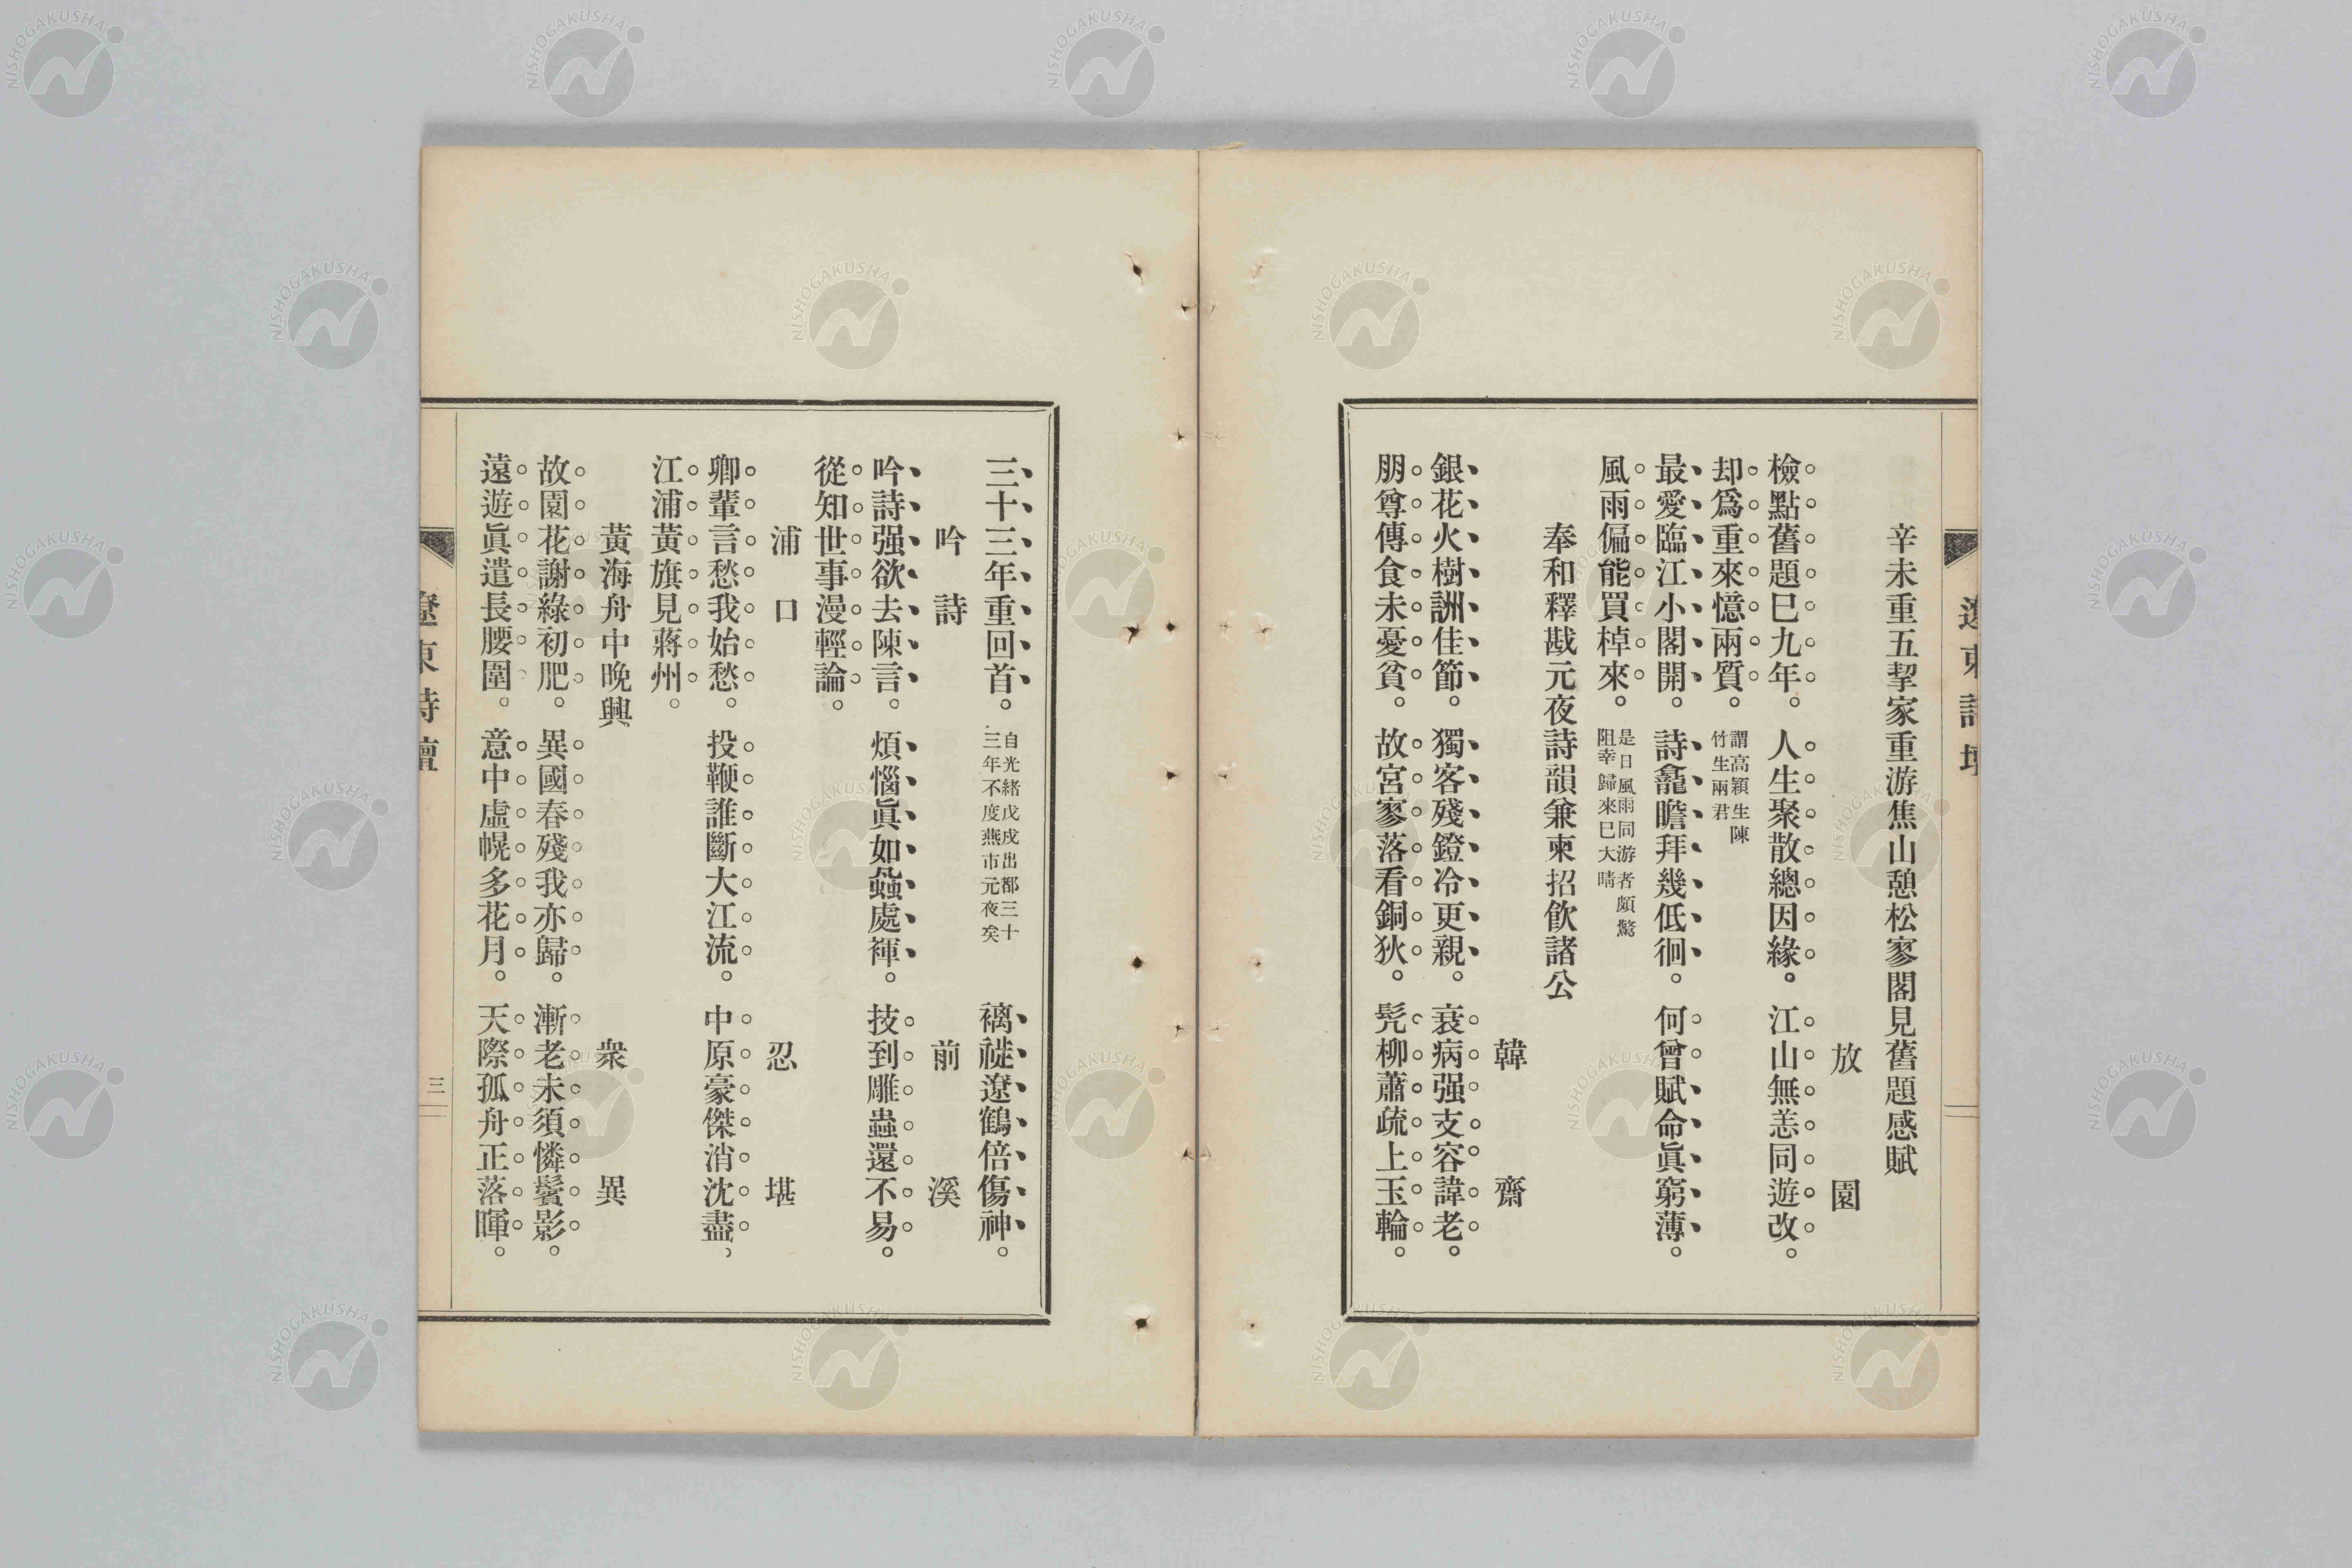 辛未重五挈家重游焦山憩松寥閣見舊題感賦
放園
檢點舊題巳九年。人生聚散總因緣。江山無恙同遊改。
却爲重來憶兩質。謂高穎生陳竹生兩君
最愛臨江小閣開。詩龕瞻拜幾低徊。何曾賦命眞窮薄。
風雨偏能買棹來。是日風雨同游者頗驚阻幸歸來巳大晴
奉和釋戡元夜詩韻兼柬招飮諸公
韓齋
銀花火樹詶佳節。獨客殘鐙冷更親。衰病强支容諱老。
朋尊傳食未憂貧。故宮寥落看銅狄。髠柳蕭疏上玉輪。
三十三年重回首。自光緒戊戌出都三十三年不度燕市元夜矣 褵褷遼鶴倍傷神。
吟詩
前溪
吟詩强欲去陳言。煩惱眞如蝨處褌。技到雕蟲還不易。
從知世事漫輕論。
浦口
忍堪
卿輩言愁我始愁。投鞭誰斷大江流。中原豪傑消沈盡。
江浦黃旗見蔣州。
黃海舟中晚興
衆異
故園花謝綠初肥。異國春殘我亦歸。漸老未須憐鬢影。
遠遊眞遣長腰圍。意中虛幌多花月。天際孤舟正落暉。
遼東詩壇
三